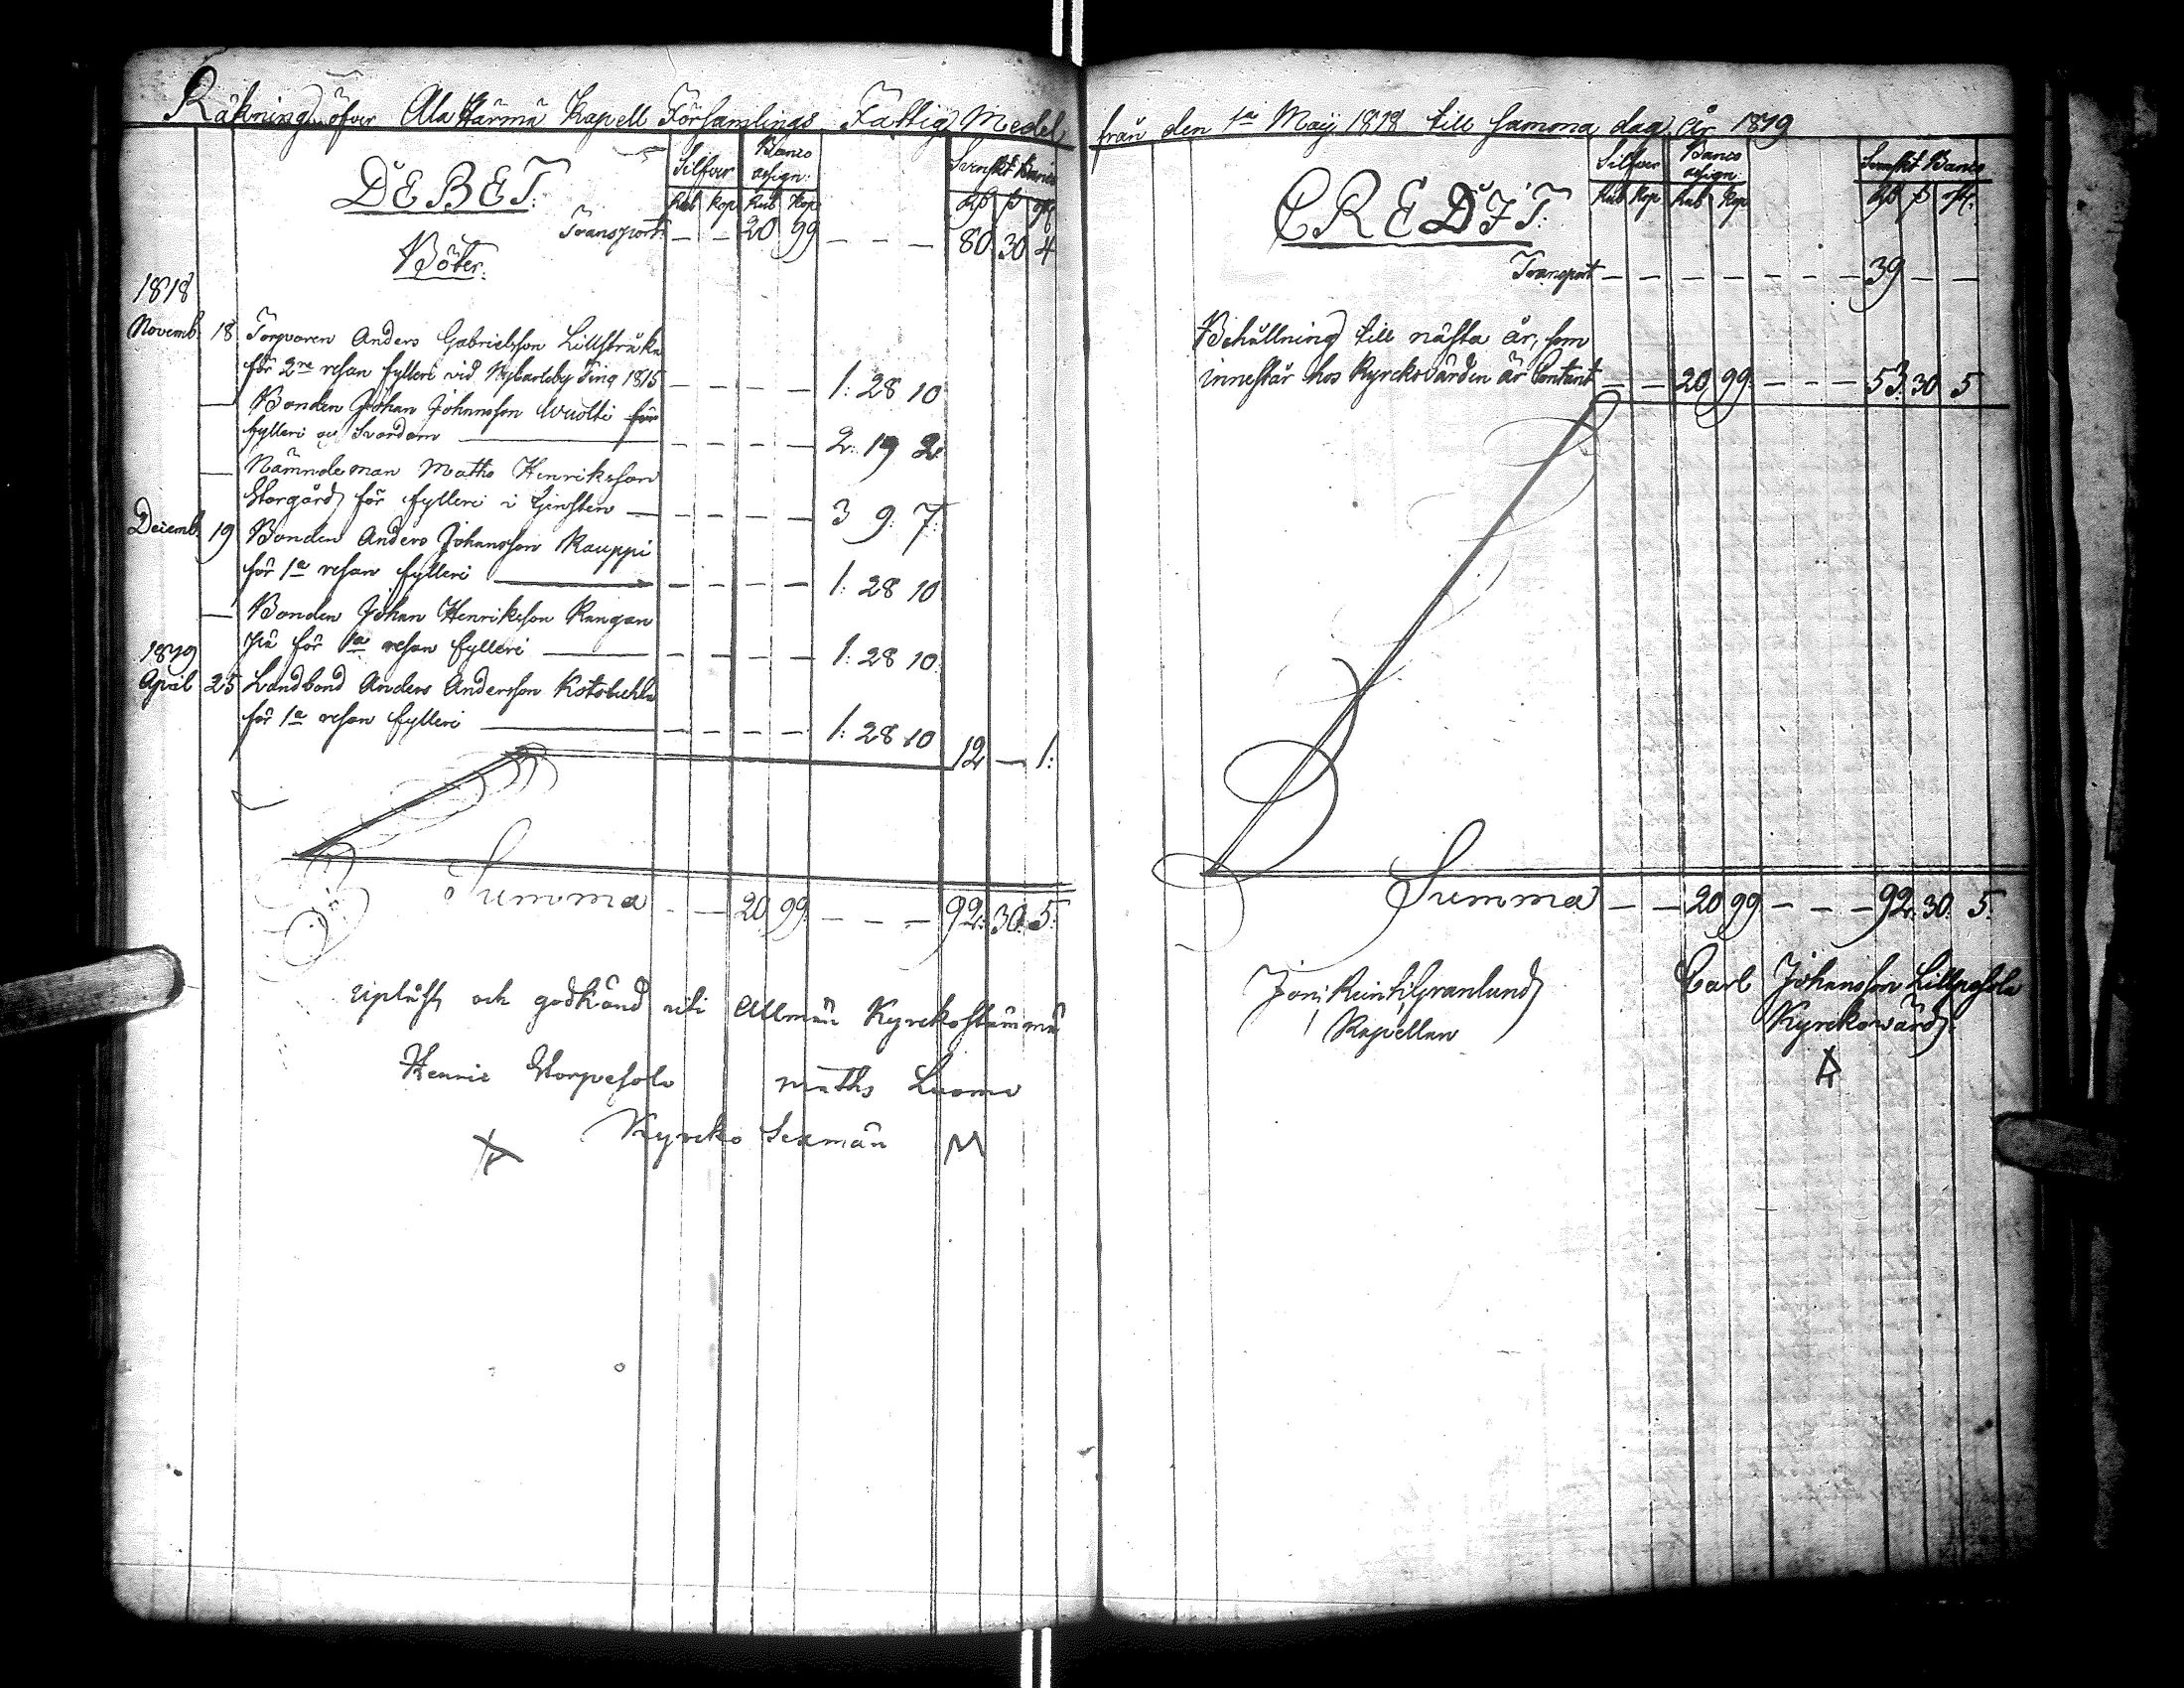 Räkning öfver Ala Härmä Kapell Församlings Fattig Medel
DEBET.
Silfver Banco assign: Svenskt Banco
Rub Kop Rub Kop Rd ß rst
Transport. — — 20 99 — — — 80 30 4
Böter.
1818
Novemb. 18 Torparen Anders Gabrielsson Lillstråka
för 2re resan fylleri vid Nykarleby Ting 1815 — — — — 1: 28 10
— Bonden Johan Johansson Wuolti för
fylleri och Svordom — — — — 2: 19 2
— Nämndeman Matts Henriksson
Storgård för fylleri i — — — — 3 9: 7:
Decemb. 19 Bonden Anders Johansson Kauppi
för 1a resan fylleri — — — — 1: 28 10
— Bonden Johan Henriksson Kangan
pä för 1a resan fylleri — — — — 1: 28 10:
1819
April 25 Landbond Anders Andersson
för 1a resan fylleri — — — — 1: 28 10 12 — 1:
Summa — — 20 99: — — — 92: 30: 5:
upläst och godkänd uti Allmän Kyrckostämma
Henric Storpesola Matts Luoma
Kyrcko Sexmän M
från den 1a Maij 1818 till samma dag år 1819
CREDIT.
Silfver Banco assign: Svenskt Banco
Rub Kop Rub Kop Rd ß rst.
Transport — — — — — — — 39 — —
Behållning till nästa år, som
innestår hos Kyrckovärden är Contant — — 20 99 — — — 53: 30 5
Summa — — 20 99 — — — 92 30: 5:
Granlund
Kapellan
Carl Johansson Lillpesola
Kyrckowärd.